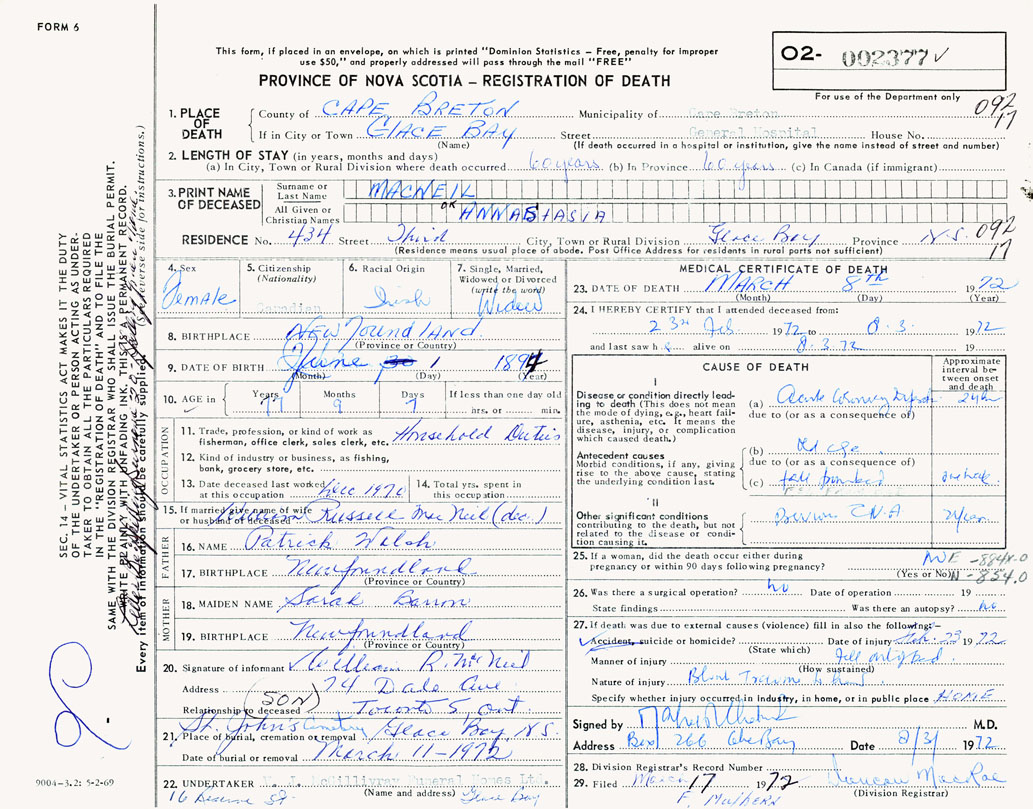 FORM 6
This form, if placed in an envelope, on which is printed "Dominion Statistics – Free, penalty for improper
use $50," and properly addressed will pass through the mail "FREE"
PROVINCE OF NOVA SCOTIA – REGISTRATION OF DEATH
O2- 002377 ✓
For use of the Department only
092
17
1. PLACE OF DEATH
County of CAPE BRETON Municipality of Cape Breton
If in City or Town GLACE BAY Street General Hospital House No.
(Name) (If death occurred in a hospital or institution, give the name instead of street and number)
2. LENGTH OF STAY (in years, months and days)
(a) In City, Town or Rural Division where death occurred 60 years (b) In Province 60 years (c) In Canada (if immigrant)
3. PRINT NAME OF DECEASED
Surname or Last Name MACNEIL
All Given or Christian Names ANNASTASIA
OK
RESIDENCE No. 434 Street Third City, Town or Rural Division Glace Bay Province N.S. 092
17
(Residence means usual place of abode. Post Office Address for residents in rural parts not sufficient)
4. Sex
Female
5. Citizenship
(Nationality)
Canadian
6. Racial Origin
Irish
7. Single, Married, Widowed or Divorced
(write the word)
Widow
8. BIRTHPLACE NEWFOUNDLAND
(Province or Country)
9. DATE OF BIRTH June 1 1894
(Month) (Day) (Year)
10. AGE in Years 77 Months 9 Days 7 If less than one day old
hrs. or min.
OCCUPATION
11. Trade, profession or kind of work as
fisherman, office clerk, sales clerk, etc. Household Duties
12. Kind of industry or business, as fishing,
bank, grocery store, etc.
13. Date deceased last worked
at this occupation Dec 1970
14. Total yrs. spent in
this occupation
15. If married give name of wife
or husband of deceased Russell MacNeil (dec.)
FATHER
16. NAME Patrick Walsh
17. BIRTHPLACE Newfoundland
(Province or Country)
MOTHER
18. MAIDEN NAME Sarah Barron
19. BIRTHPLACE Newfoundland
(Province or Country)
20. Signature of informant William R. McNeil
Address 74 Dale Ave
Relationship to deceased (SON) Toronto 5, Ont
21. Place of burial, cremation or removal St. John's Cemetery Glace Bay, N.S.
Date of burial or removal March 11-1972
22. UNDERTAKER V. J. McGillivray Funeral Homes Ltd.
(Name and address)
16 Reserve St. Glace Bay
MEDICAL CERTIFICATE OF DEATH
23. DATE OF DEATH MARCH 8TH 1972
(Month) (Day) (Year)
24. I HEREBY CERTIFY that I attended deceased from:
23rd Feb. 1972 to 8.3. 1972
and last saw h alive on 8.3.72 19
CAUSE OF DEATH
Approximate interval between onset and death
I
Disease or condition directly leading to death (This does not mean
the mode of dying, e.g., heart failure, asthenia, etc. It means the
disease, injury, or complication
which caused death.)
(a) Acute Coronary 24hr
due to (or as a consequence of)
Antecedent causes
Morbid conditions, if any, giving
rise to the above cause, stating
the underlying condition last.
(b) Old age
due to (or as a consequence of)
(c) fall
II
Other significant conditions
contributing to the death, but not
related to the disease or condition causing it.
Previous C.V.A
25. If a woman, did the death occur either during
pregnancy or within 90 days following pregnancy?
(Yes or No)
E -884X.0
N -854.0
26. Was there a surgical operation? no Date of operation 19
State findings Was there an autopsy? no
27. If death was due to external causes (violence) fill in also the following:–
Accident, suicide or homicide? Date of injury Feb. 23 1972
(State which)
Manner of injury Fell
(How sustained)
Nature of injury Blunt Trauma to
Specify whether injury occurred in industry, in home, or in public place HOME
Signed by M.D.
Address Box 266 Glace Bay Date 8/3/ 1972
28. Division Registrar's Record Number
29. Filed March 17 1972 Duncan MacRae
F. (Division Registrar)
SEC. 14 – VITAL STATISTICS ACT MAKES IT THE DUTY
OF THE UNDERTAKER OR PERSON ACTING AS UNDERTAKER TO OBTAIN ALL THE PARTICULARS REQUIRED
IN THE "REGISTRATION OF DEATH" AND TO FILE THE
SAME WITH THE DIVISION REGISTRAR WHO SHALL ISSUE THE BURIAL PERMIT.
WRITE PLAINLY WITH UNFADING INK, THIS IS A PERMANENT RECORD.
Every item of information should be carefully supplied (See reverse side for instructions.)
9004–3.2: 5-2-69